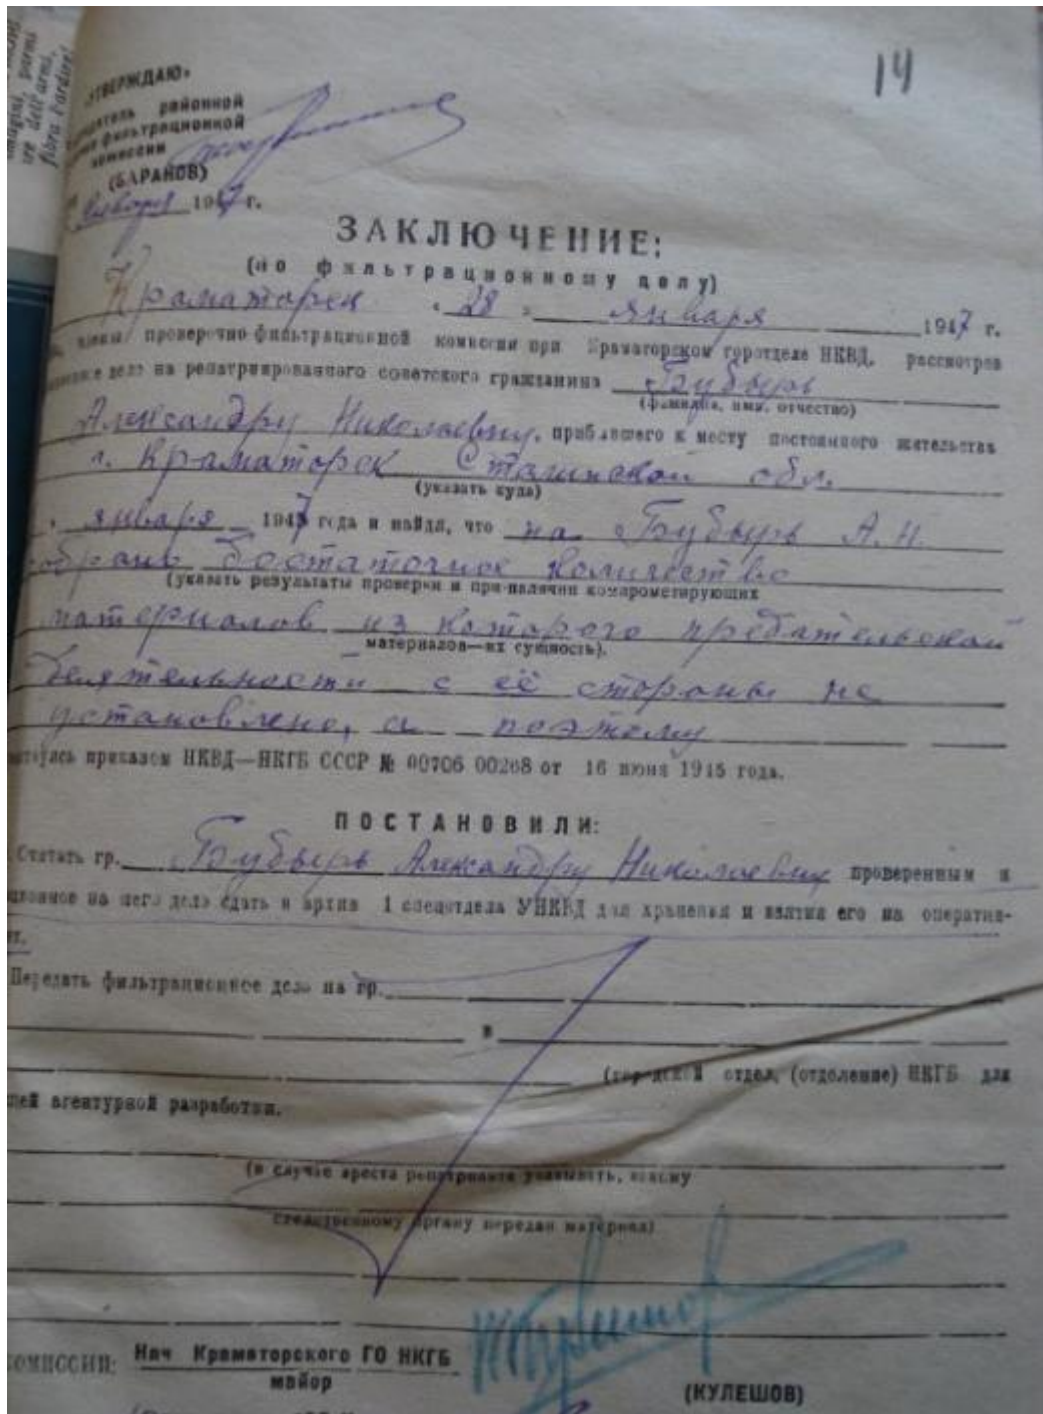 14
«УТВЕРЖДАЮ»
районной
фильтрационной
комиссии
(БАРАНОВ)
Января 1947 г.
ЗАКЛЮЧЕНИЕ:
(по фильтрационному делу)
Краматорск «28» января 1947 г.
члены проверочно-фильтрационной комиссии при Краматорском горотделе НКВД, рассмотрев
дело на репатриированного советского гражданина Бубырь
(фамилия, имя, отчество)
Александру Николаевну, прибывшего к месту постоянного жительства
г. Краматорск Сталинской обл.
(указать куда)
января 1947 года и найдя, что на Бубырь А.Н.
собрано достаточное количество
(указать результаты проверки и при наличии компрометирующих
материалов из которого предательской
материалов—их сущность).
деятельности с её стороны не
установлено, а поэтому
приказом НКВД—НКГБ СССР № 00706 00268 от 16 июня 1945 года.
ПОСТАНОВИЛИ:
Считать гр. Бубырь Александру Николаевну проверенным и
на него дело сдать в архив 1 спецотдела УНКВД для хранения и взятия его на оператив-
Передать фильтрационное дело на гр.
в
(городской отдел, (отделение) НКГБ для
агентурной разработки.
(в случае ареста репатрианта указывать, какому
следственному органу передан материал)
КОМИССИИ: Нач Краматорского ГО НКГБ
майор
(КУЛЕШОВ)